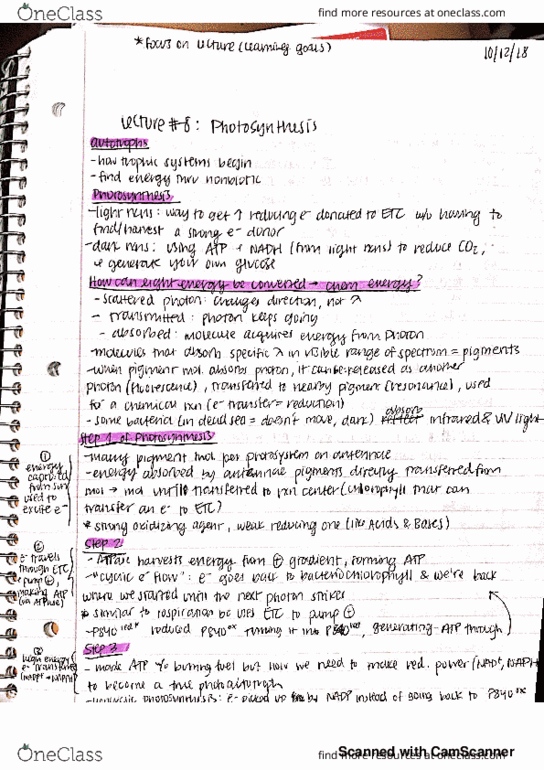 OneClass
find more resources at oneclass.com
*Focus on Lecture (learning goals)
10/12/18
Lecture #8: Photosynthesis
autotrophs
- how trophic systems begin
- find energy thru nonbiotic
Photosynthesis
- light rxns: way to get ↑ reducing e- donated to ETC w/o having to
find/harvest a strong e- donor
- dark rxns: using ATP + NADH (from light rxns) to reduce CO2,
& generate your own glucose
How can light energy be converted → chem energy?
- scattered photon: changes direction, not λ
- transmitted: photon keeps going
- absorbed: molecule acquires energy from photon
- molecules that absorb specific λ in visible range of spectrum = pigments
- when pigment mol. absorbs photon, it can be released as another
photon (fluorescence), transferred to nearby pigment (resonance), used
for a chemical rxn (e- transfer = reduction)
absorb
- some bacteria (in dead sea = doesn't move, dark) reflect infrared & UV light
Step 1 of Photosynthesis
- many pigment mol per photosystem on antennae
- energy absorbed by antennae pigments directly transferred from
mol → mol until transferred to rxn center (chlorophyll that can
transfer an e- to ETC)
* strong oxidizing agent, weak reducing one (like Acids & Bases)
① energy captured from sun used to excite e-
Step 2:
- ATPase harvests energy from ⊕ gradient, forming ATP
- "cyclic e- flow": e- goes back to bacteriochlorophyll & we're back
where we started until the next photon strikes
* similar to respiration bc uses ETC to pump ⊕
- P840 red* reduced P840 ox turning it into P840 red, generating ATP through
② e- travels through ETC & pump ⊕, making ATP (via ATPase)
Step 3
- made ATP w/o burning fuel but now we need to make red. power (NADH, NADPH)
to become a true photoautotroph
photosynthesis: e- picked up by NADP instead of going back to P840 ox
③ high energy e- transferred
OneClass
find more resources at oneclass.com
Scanned with CamScanner